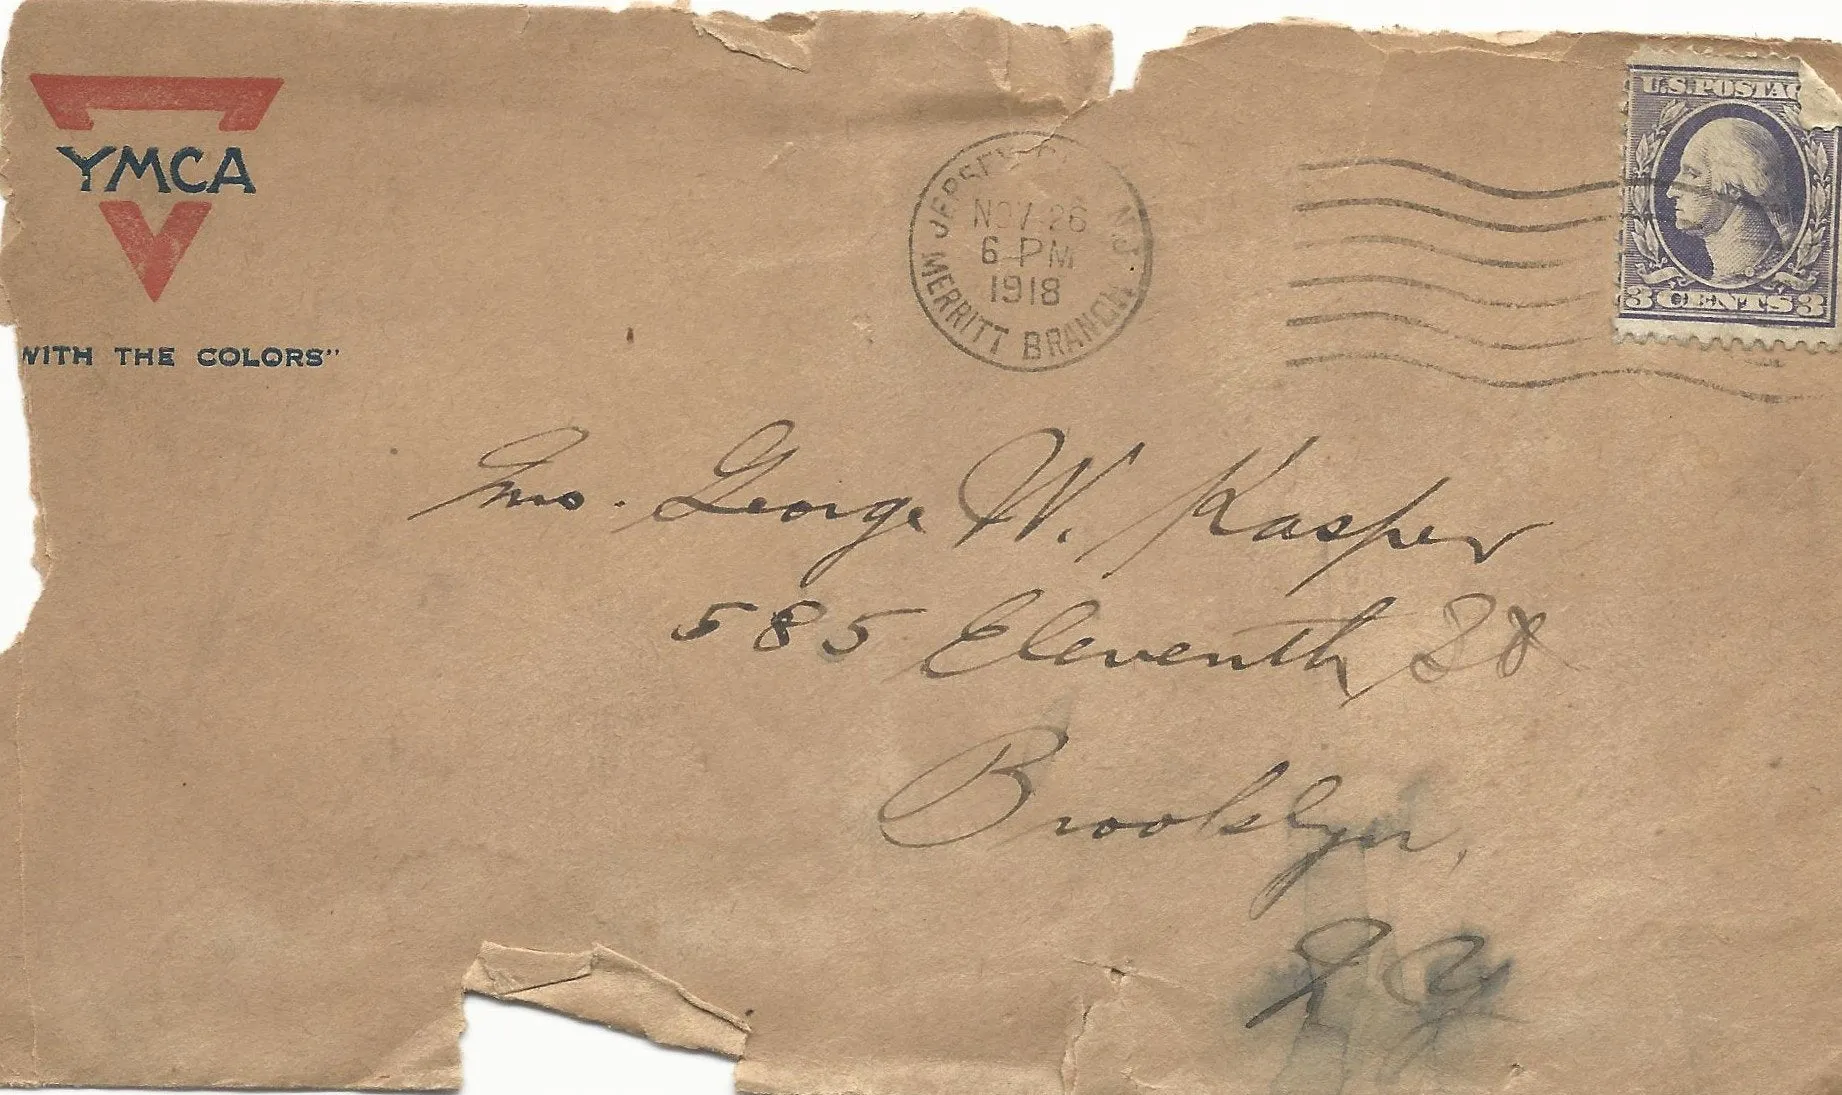 YMCA
WITH THE COLORS"
JERSEY CITY N.J.
NOV 26
6 PM
1918
MERRITT BRANCH
U.S. POSTAG
3 CENTS 3
Mrs. George W. Kasper
585 Eleventh St
Brooklyn,
N Y